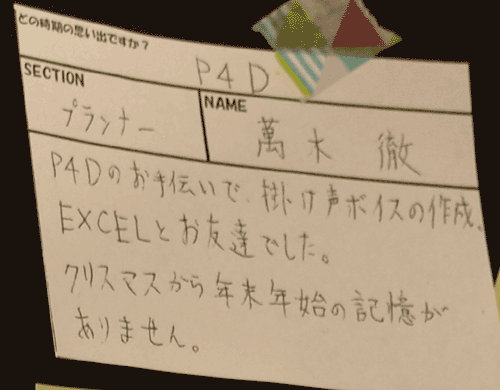 どの時期の思い出ですか？
P4D
SECTION
プランナー
NAME
萬木 徹
P4Dのお手伝いで、掛け声ボイスの作成、
EXCELとお友達でした。
クリスマスから年末年始の記憶が
ありません。